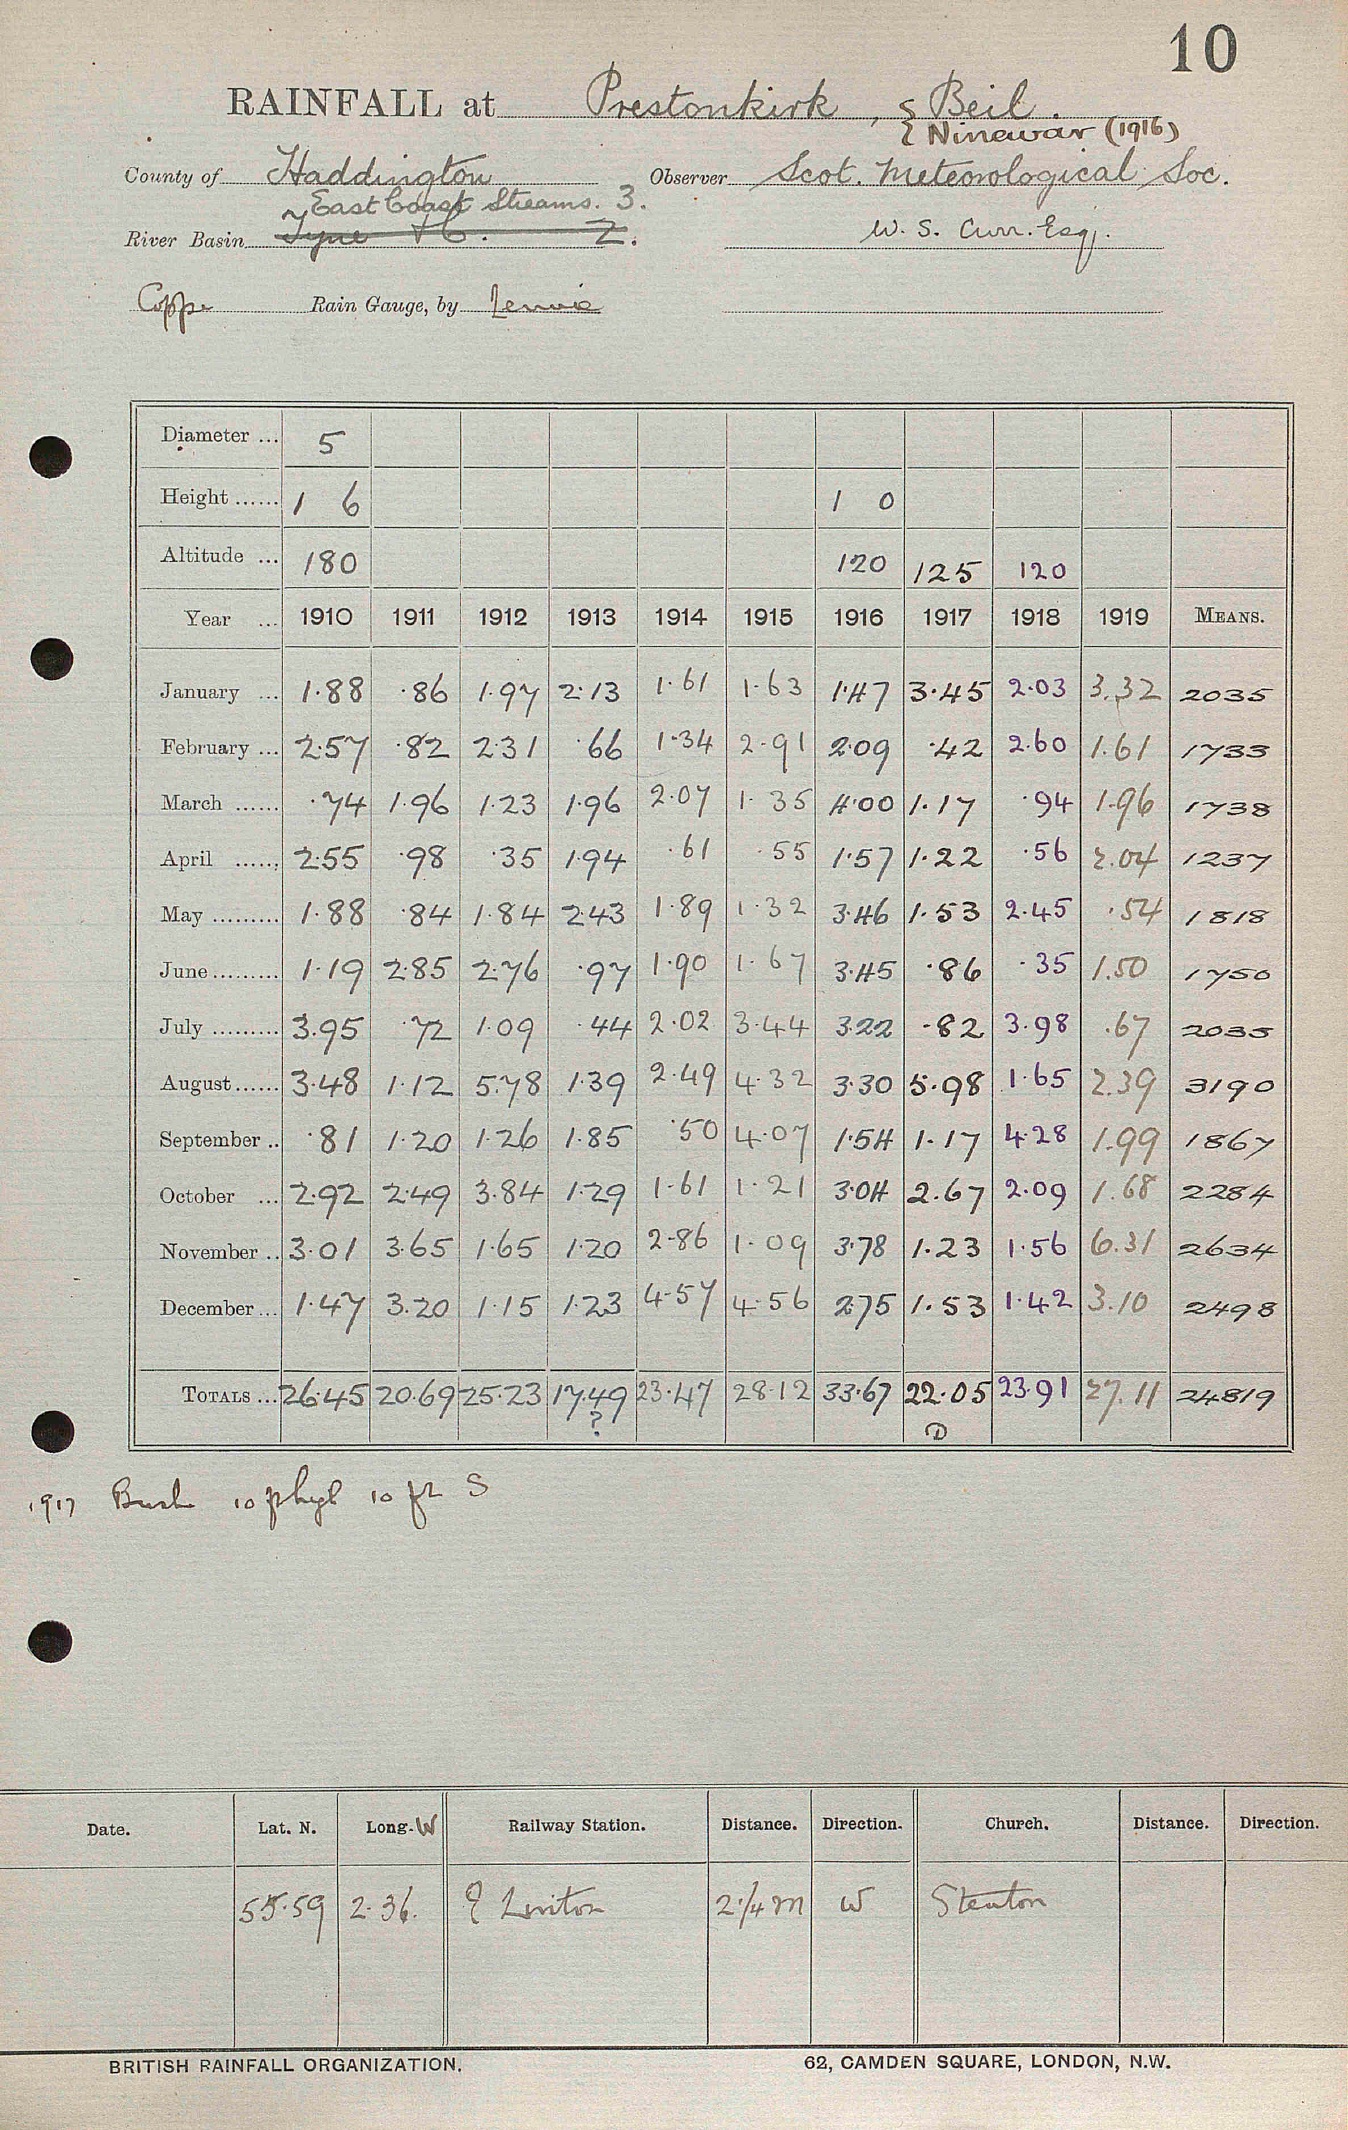 10
RAINFALL at Prestonkirk, { Beil.
{ Ninewar (1916)
County of Haddington Observer Scot. Meteorological Soc.
East Coast Streams. 3.
River Basin Tyne &c. 2. W. S. Curr. Esq.
Copper Rain Gauge, by
Diameter ... 5
Height ...... 1 6 1 0
Altitude ... 180 120 125 120
Year ... 1910 1911 1912 1913 1914 1915 1916 1917 1918 1919 MEANS.
January ... 1.88 .86 1.97 2.13 1.61 1.63 1.47 3.45 2.03 3.32 2035
February ... 2.57 .82 2.31 .66 1.34 2.91 2.09 .42 2.60 1.61 1733
March ...... .74 1.96 1.23 1.96 2.07 1.35 4.00 1.17 .94 1.96 1738
April ...... 2.55 .98 .35 1.94 .61 .55 1.57 1.22 .56 2.04 1237
May ......... 1.88 .84 1.84 2.43 1.89 1.32 3.46 1.53 2.45 .54 1818
June ......... 1.19 2.85 2.76 .97 1.90 1.67 3.45 .86 .35 1.50 1750
July ......... 3.95 .72 1.09 .44 2.02 3.44 3.22 .82 3.98 .67 2035
August ...... 3.48 1.12 5.78 1.39 2.49 4.32 3.30 5.98 1.65 2.39 3190
September .. .81 1.20 1.26 1.85 .50 4.07 1.54 1.17 4.28 1.99 1867
October ... 2.92 2.49 3.84 1.29 1.61 1.21 3.04 2.67 2.09 1.68 2284
November .. 3.01 3.65 1.65 1.20 2.86 1.09 3.78 1.23 1.56 6.31 2634
December ... 1.47 3.20 1.15 1.23 4.57 4.56 2.75 1.53 1.42 3.10 2498
TOTALS ... 26.45 20.69 25.23 17.49 23.47 28.12 33.67 22.05 23.91 27.11 24819
? D
1917 Bush 10 ft high 10 ft S
Date. Lat. N. Long. W Railway Station. Distance. Direction. Church. Distance. Direction.
55.59 2.36. E Linton 2 1/4 m W Stenton
BRITISH RAINFALL ORGANIZATION. 62, CAMDEN SQUARE, LONDON, N.W.